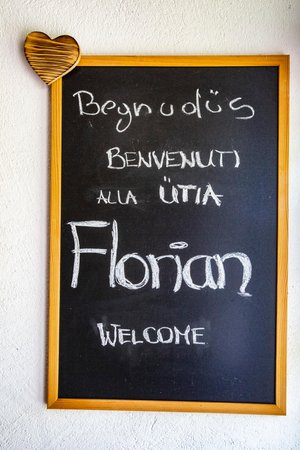 Begnudüs
BENVENUTI
ALLA ÜTIA
Florian
WELCOME